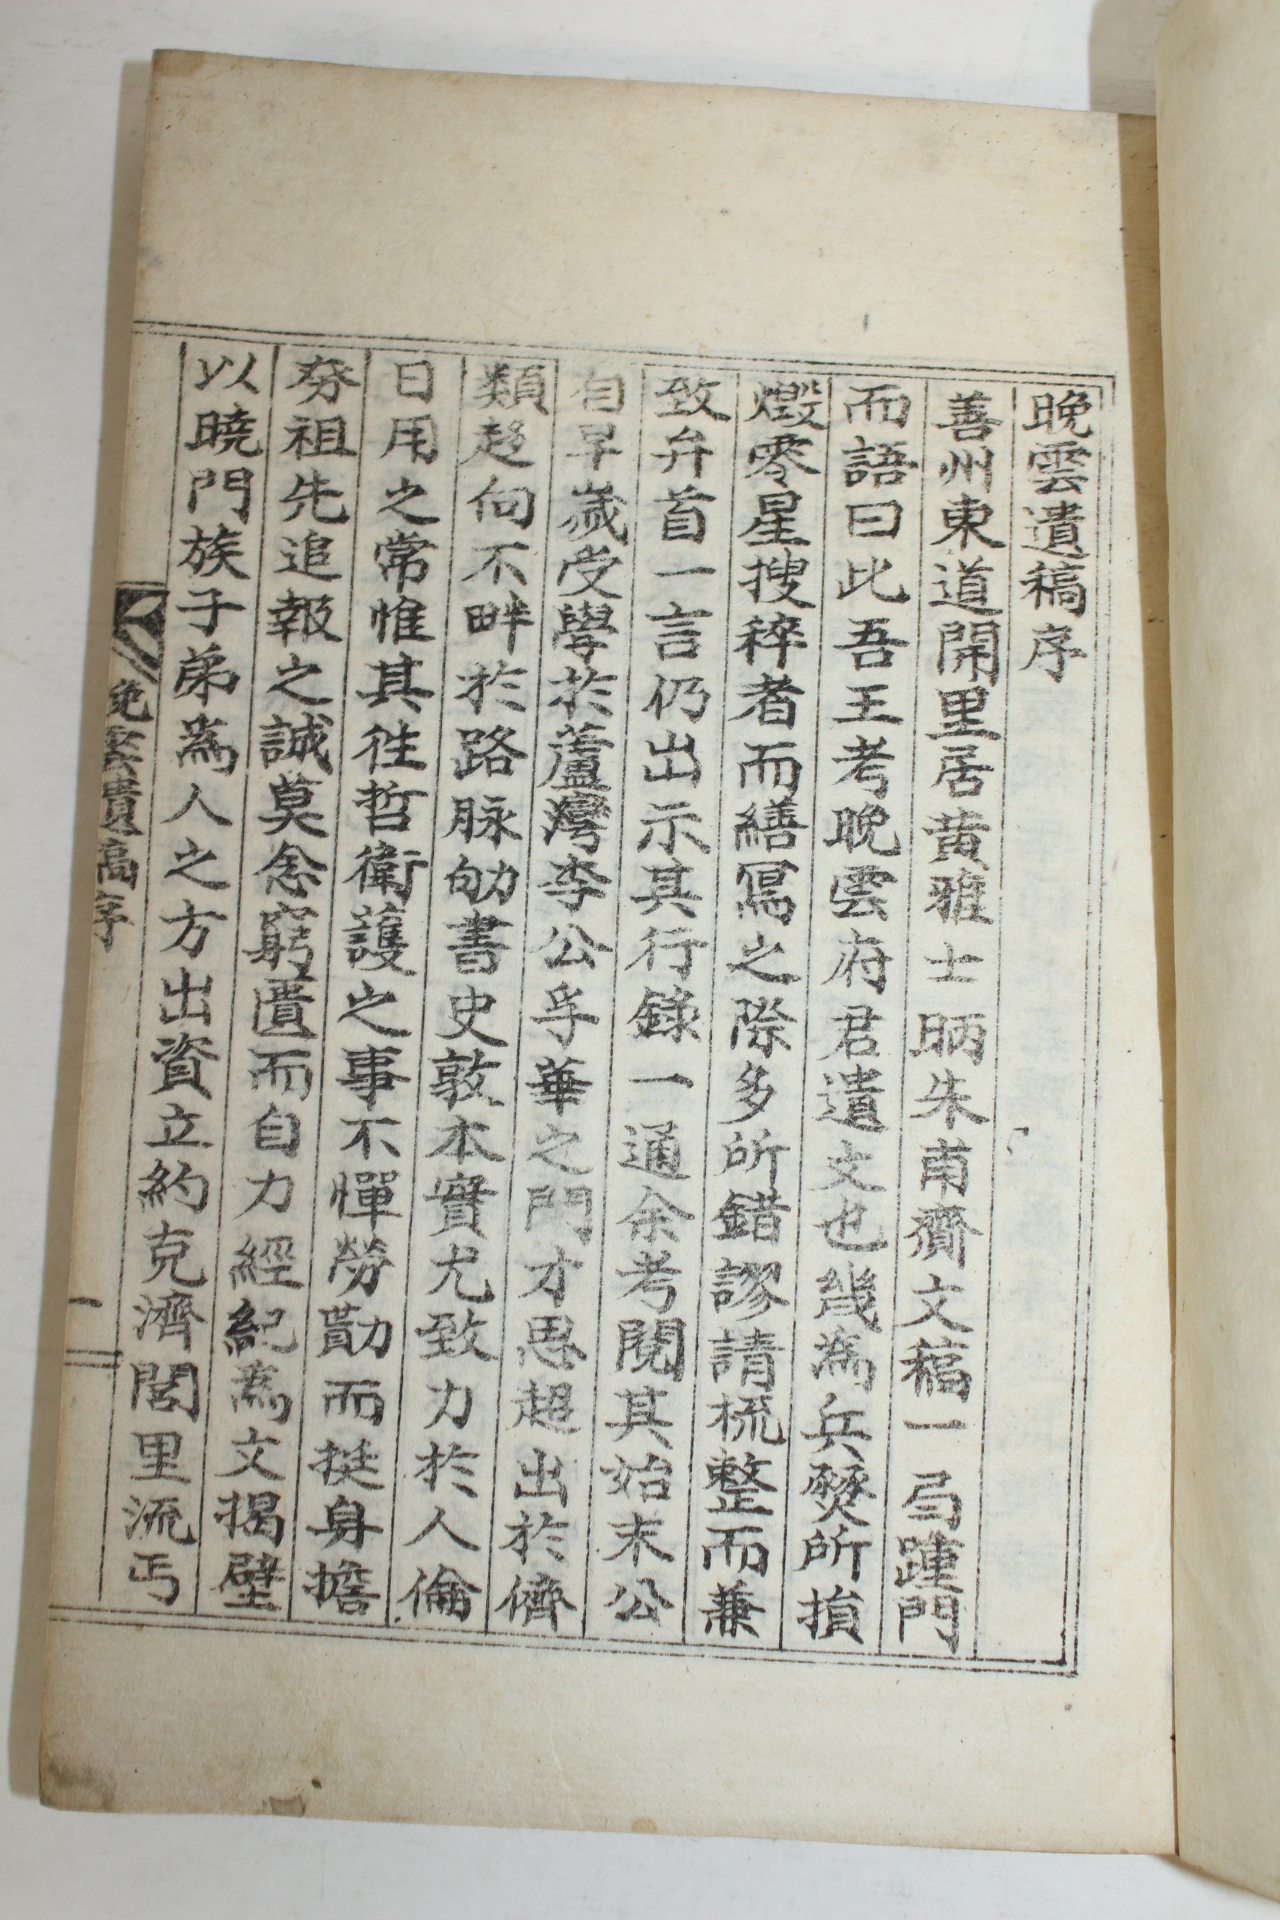 晩雲遺稿序
善州東道開里居黄雅士昞朱甫齎文稿一弓踵門
而語曰此吾王考晩雲府君遺文也幾為兵燹所損
燬零星搜稡者而繕寫之際多所錯謬請梳整而兼
致弁首一言仍出示其行錄一通余考閱其始末公
自早歲受學於蘆灣李公孚華之門才思超出於儕
類趍向不畔於路脉劬書史敦本實尤致力於人倫
日用之常惟其徃哲衛護之事不憚勞勩而挺身擔
夯祖先追報之誠莫念窮匱而自力經紀為文揭壁
以曉門族子弟為人之方出資立約克濟閭里流丐
晩雲遺稿序
一